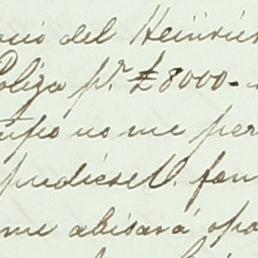 del Heinrich
Poliza pr. £8000-
no me per
pudiese U. fam
me avisará opo